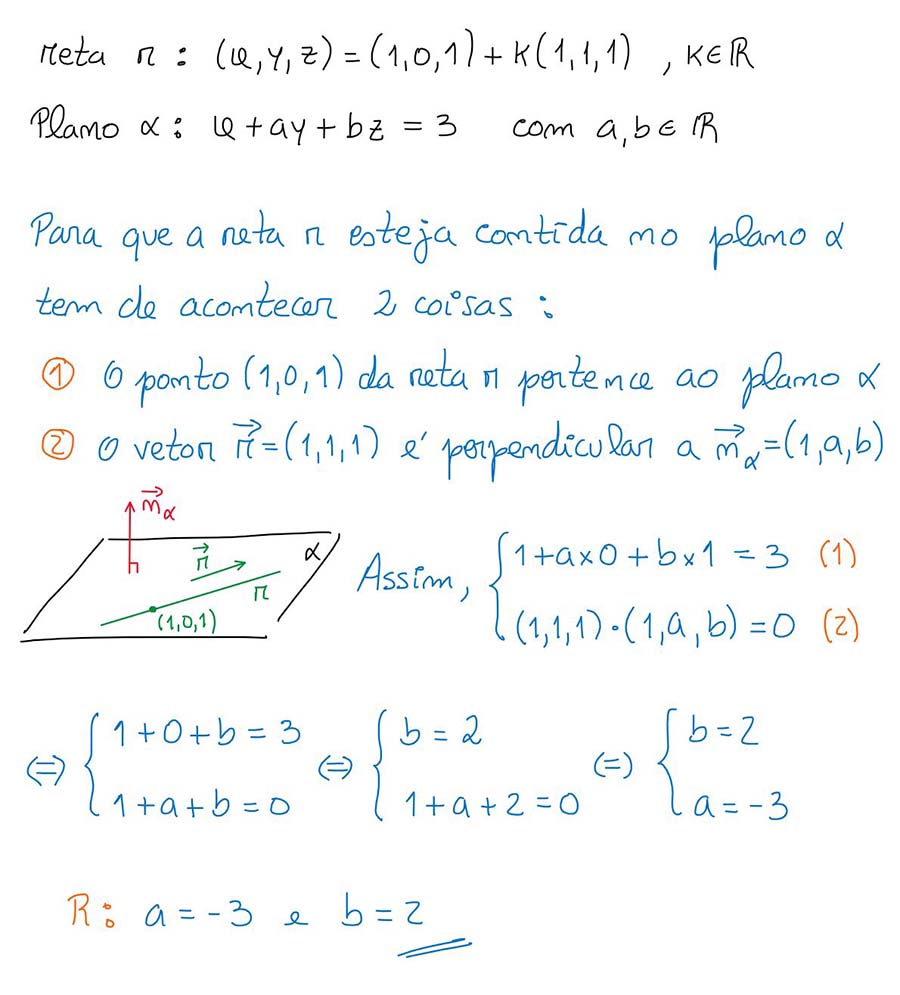 reta r : (x,y,z) = (1,0,1) + K(1,1,1) , K∈ℝ
Plano α : x + ay + bz = 3 com a,b ∈ ℝ
Para que a reta r esteja contida no plano α
tem de acontecer 2 coisas :
① O ponto (1,0,1) da reta r pertence ao plano α
② O vetor r⃗ = (1,1,1) é perpendicular a n⃗α = (1,a,b)
n⃗α
r⃗
α
r
(1,0,1)
Assim, { 1 + a×0 + b×1 = 3 (1)
(1,1,1)·(1,a,b) = 0 (2)
⇔ { 1 + 0 + b = 3 ⇔ { b = 2 (=) { b = 2
1 + a + b = 0 1 + a + 2 = 0 a = -3
R: a = -3 e b = 2